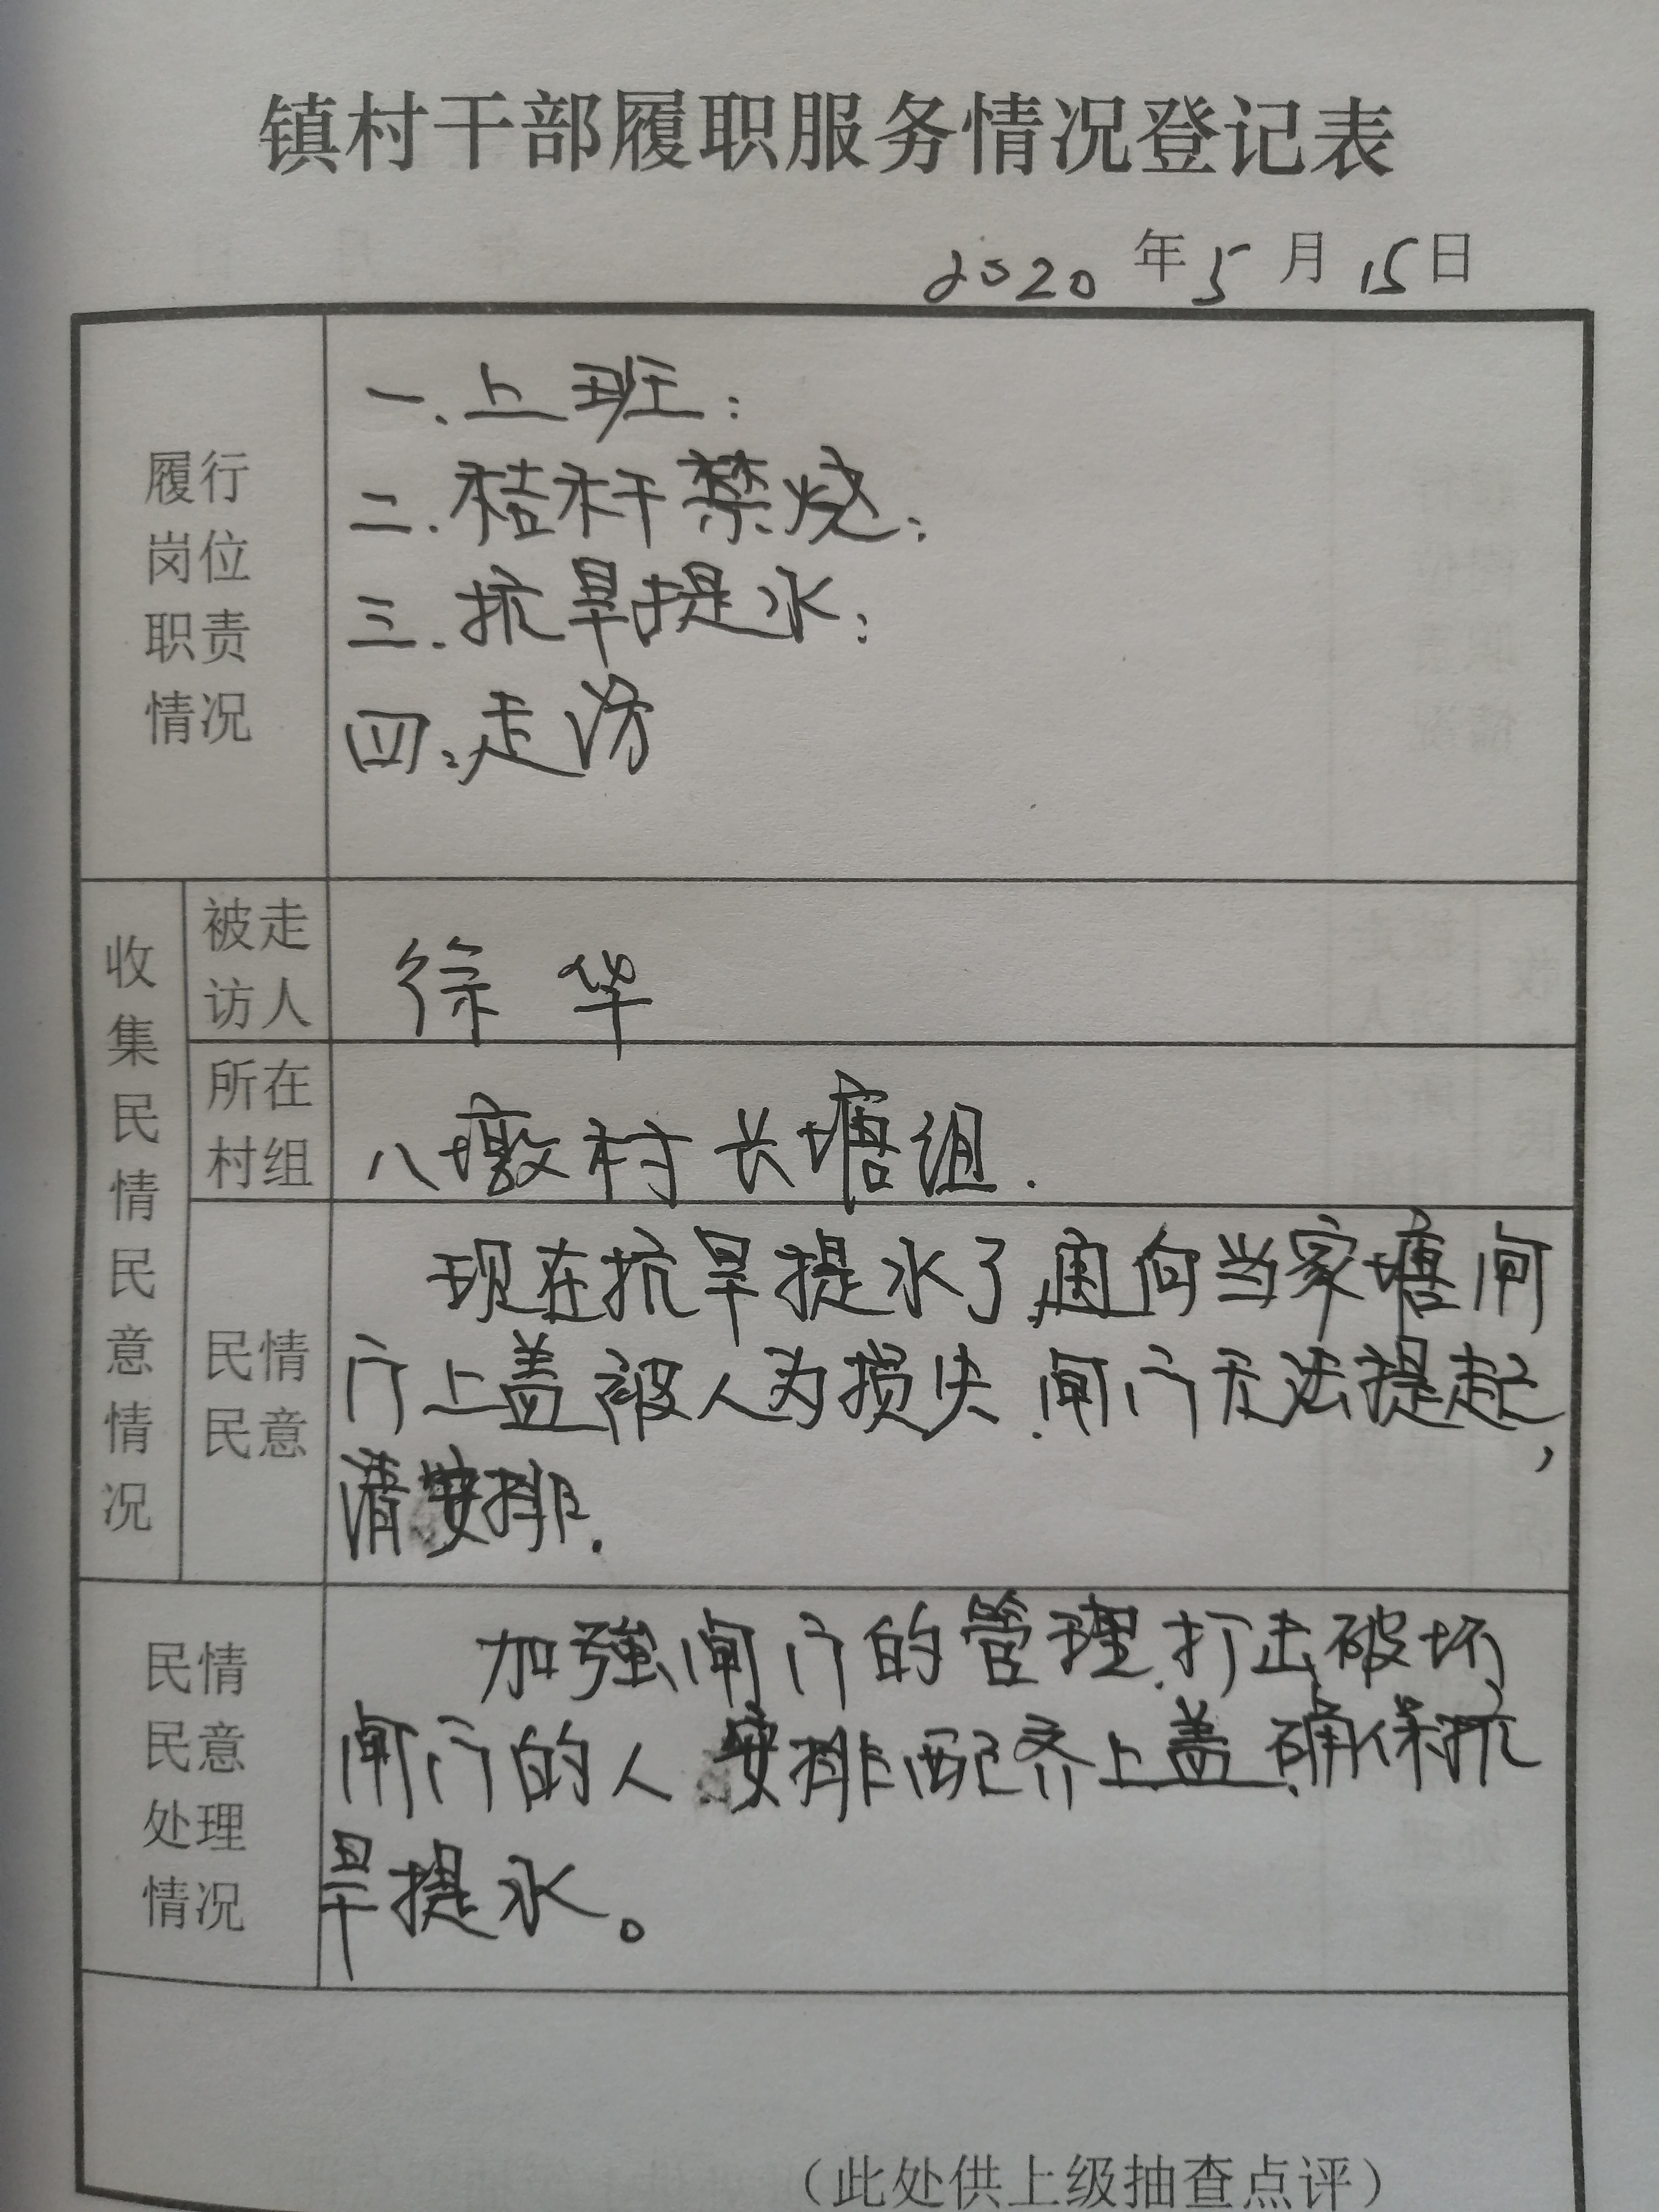 镇村干部履职服务情况登记表
2020年5月15日
履行
岗位
职责
情况
一.上班;
二.秸秆禁烧;
三.抗旱提水;
四.走访
收集民情民意情况
被走
访人
徐华
所在
村组
八墩村长塘组.
民情
民意
现在抗旱提水了,通向当家塘闸
门上盖被人为损失.闸门无法提起,
请安排.
民情
民意
处理
情况
加强闸门的管理.打击破坏
闸门的人 安排配齐上盖.确保抗
旱提水。
（此处供上级抽查点评）